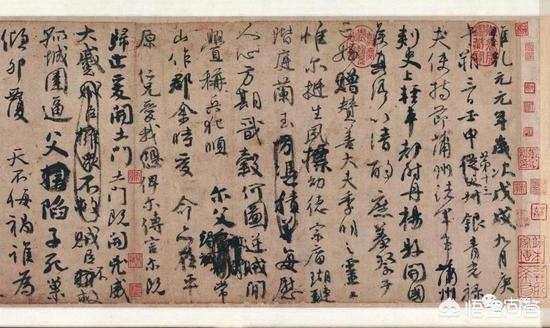 維乾元元年歲次戊戌九月庚
午朔三日壬申第十三從父叔銀青光祿
夫使持節蒲州諸軍事蒲州
刺史上輕車都尉丹楊縣開國
侯真卿以清酌庶羞祭于
亡姪贈贊善大夫季明之靈曰
惟爾挺生夙標幼德宗廟瑚璉
階庭蘭玉方憑積善每慰
人心方期戩穀何圖逆賊閒
釁稱兵犯順爾父竭誠常
山作郡余時受命亦在平
原仁兄愛我俾爾傳言爾既
歸止爰開土門土門既開凶威
大蹙賊臣擁眾不救賊臣不救
孤城圍逼父陷子死巢
傾卵覆天不悔禍誰為
悟空问答